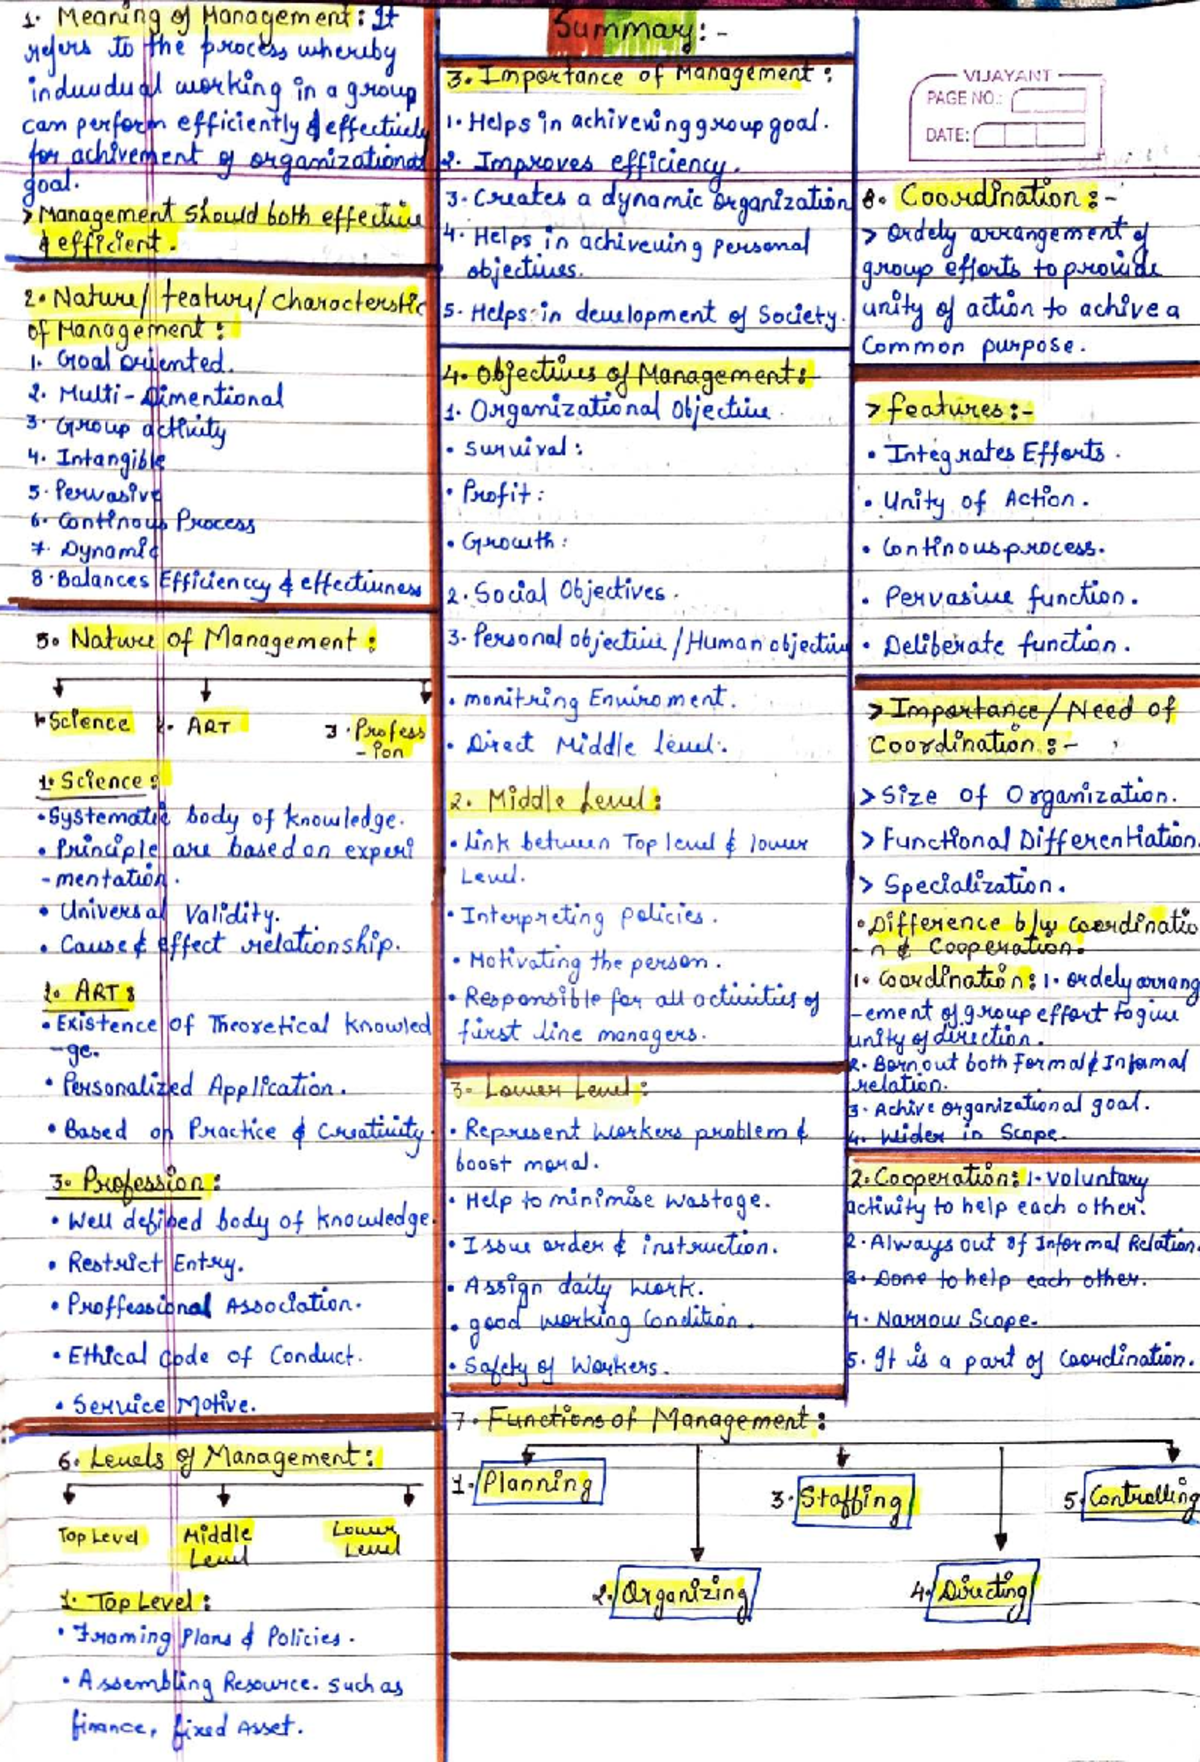 1. Meaning of Management: It
refers to the process whereby
induvdual working in a group
can perform efficiently & effectively
for achivement of organizational
goal.
> Management should both effective
& efficient.
2. Nature/feature/characterstic
of Management:
1. Goal oriented.
2. Multi-Dimentional
3. Group activity
4. Intangible
5. Pervasive
6. Continous Process
7. Dynamic
8. Balances Efficiency & effectiveness
5. Nature of Management:
1. Science 2. ART 3. Profess
-ion
1. Science:
• Systematic body of knowledge.
• Principle are based on experi
-mentation.
• Universal Validity.
• Cause & effect relationship.
2. ART:
• Existence of Theoretical knowled
-ge.
• Personalized Application.
• Based on Practice & Creativity.
3. Profession:
• Well defined body of knowledge.
• Restrict Entry.
• Proffessional Association.
• Ethical code of Conduct.
• Service Motive.
6. Levels of Management:
Top Level Middle Lower
Level Level
1. Top Level:
• Framing Plans & Policies.
• Assembling Resource. such as
finance, fixed Asset.
Summary:-
3. Importance of Management:
1. Helps in achivening group goal.
2. Improves efficiency.
3. Creates a dynamic organization
4. Helps in achiveing personal
objectives.
5. Helps in development of Society.
4. Objectives of Management:-
1. Organizational Objective.
• Survival:
• Profit:
• Growth:
2. Social Objectives.
3. Personal objective/Human objective
• monitring Enviroment.
• Direct Middle level.
2. Middle Level:
• link between Top level & lower
Level.
• Interpreting policies.
• Motivating the person.
• Responsible for all activities of
first line managers.
3. Lower Level:
• Represent workers problem &
boost moral.
• Help to minimise wastage.
• Issue order & instruction.
• Assign daily work.
• good working Condition.
• Safety of Workers.
7. Functions of Management:
1. Planning
3. Staffing
5. Controlling
2. Organizing
4. Directing
VIJAYANT
PAGE NO.:
DATE:
8. Coordination:-
> Ordely arrangement of
group efforts to provide
unity of action to achive a
Common purpose.
> features:-
• Integrates Efforts.
• Unity of Action.
• Continous process.
• Pervasive function.
• Deliberate function.
> Importance/Need of
Coordination:-
> Size of Organization.
> Functional Differentiation.
> Specialization.
• Difference b/w coordinatio
-n & Cooperation.
1. Coordination: 1. ordely arrang
-ement of group effort to give
unity of direction.
2. Born out both Formal & Informal
relation.
3. Achive organizational goal.
4. Wider in Scope.
2. Cooperation: 1. voluntary
activity to help each other.
2. Always out of Informal Relation.
3. Done to help each other.
4. Narrow Scope.
5. It is a part of Coordination.